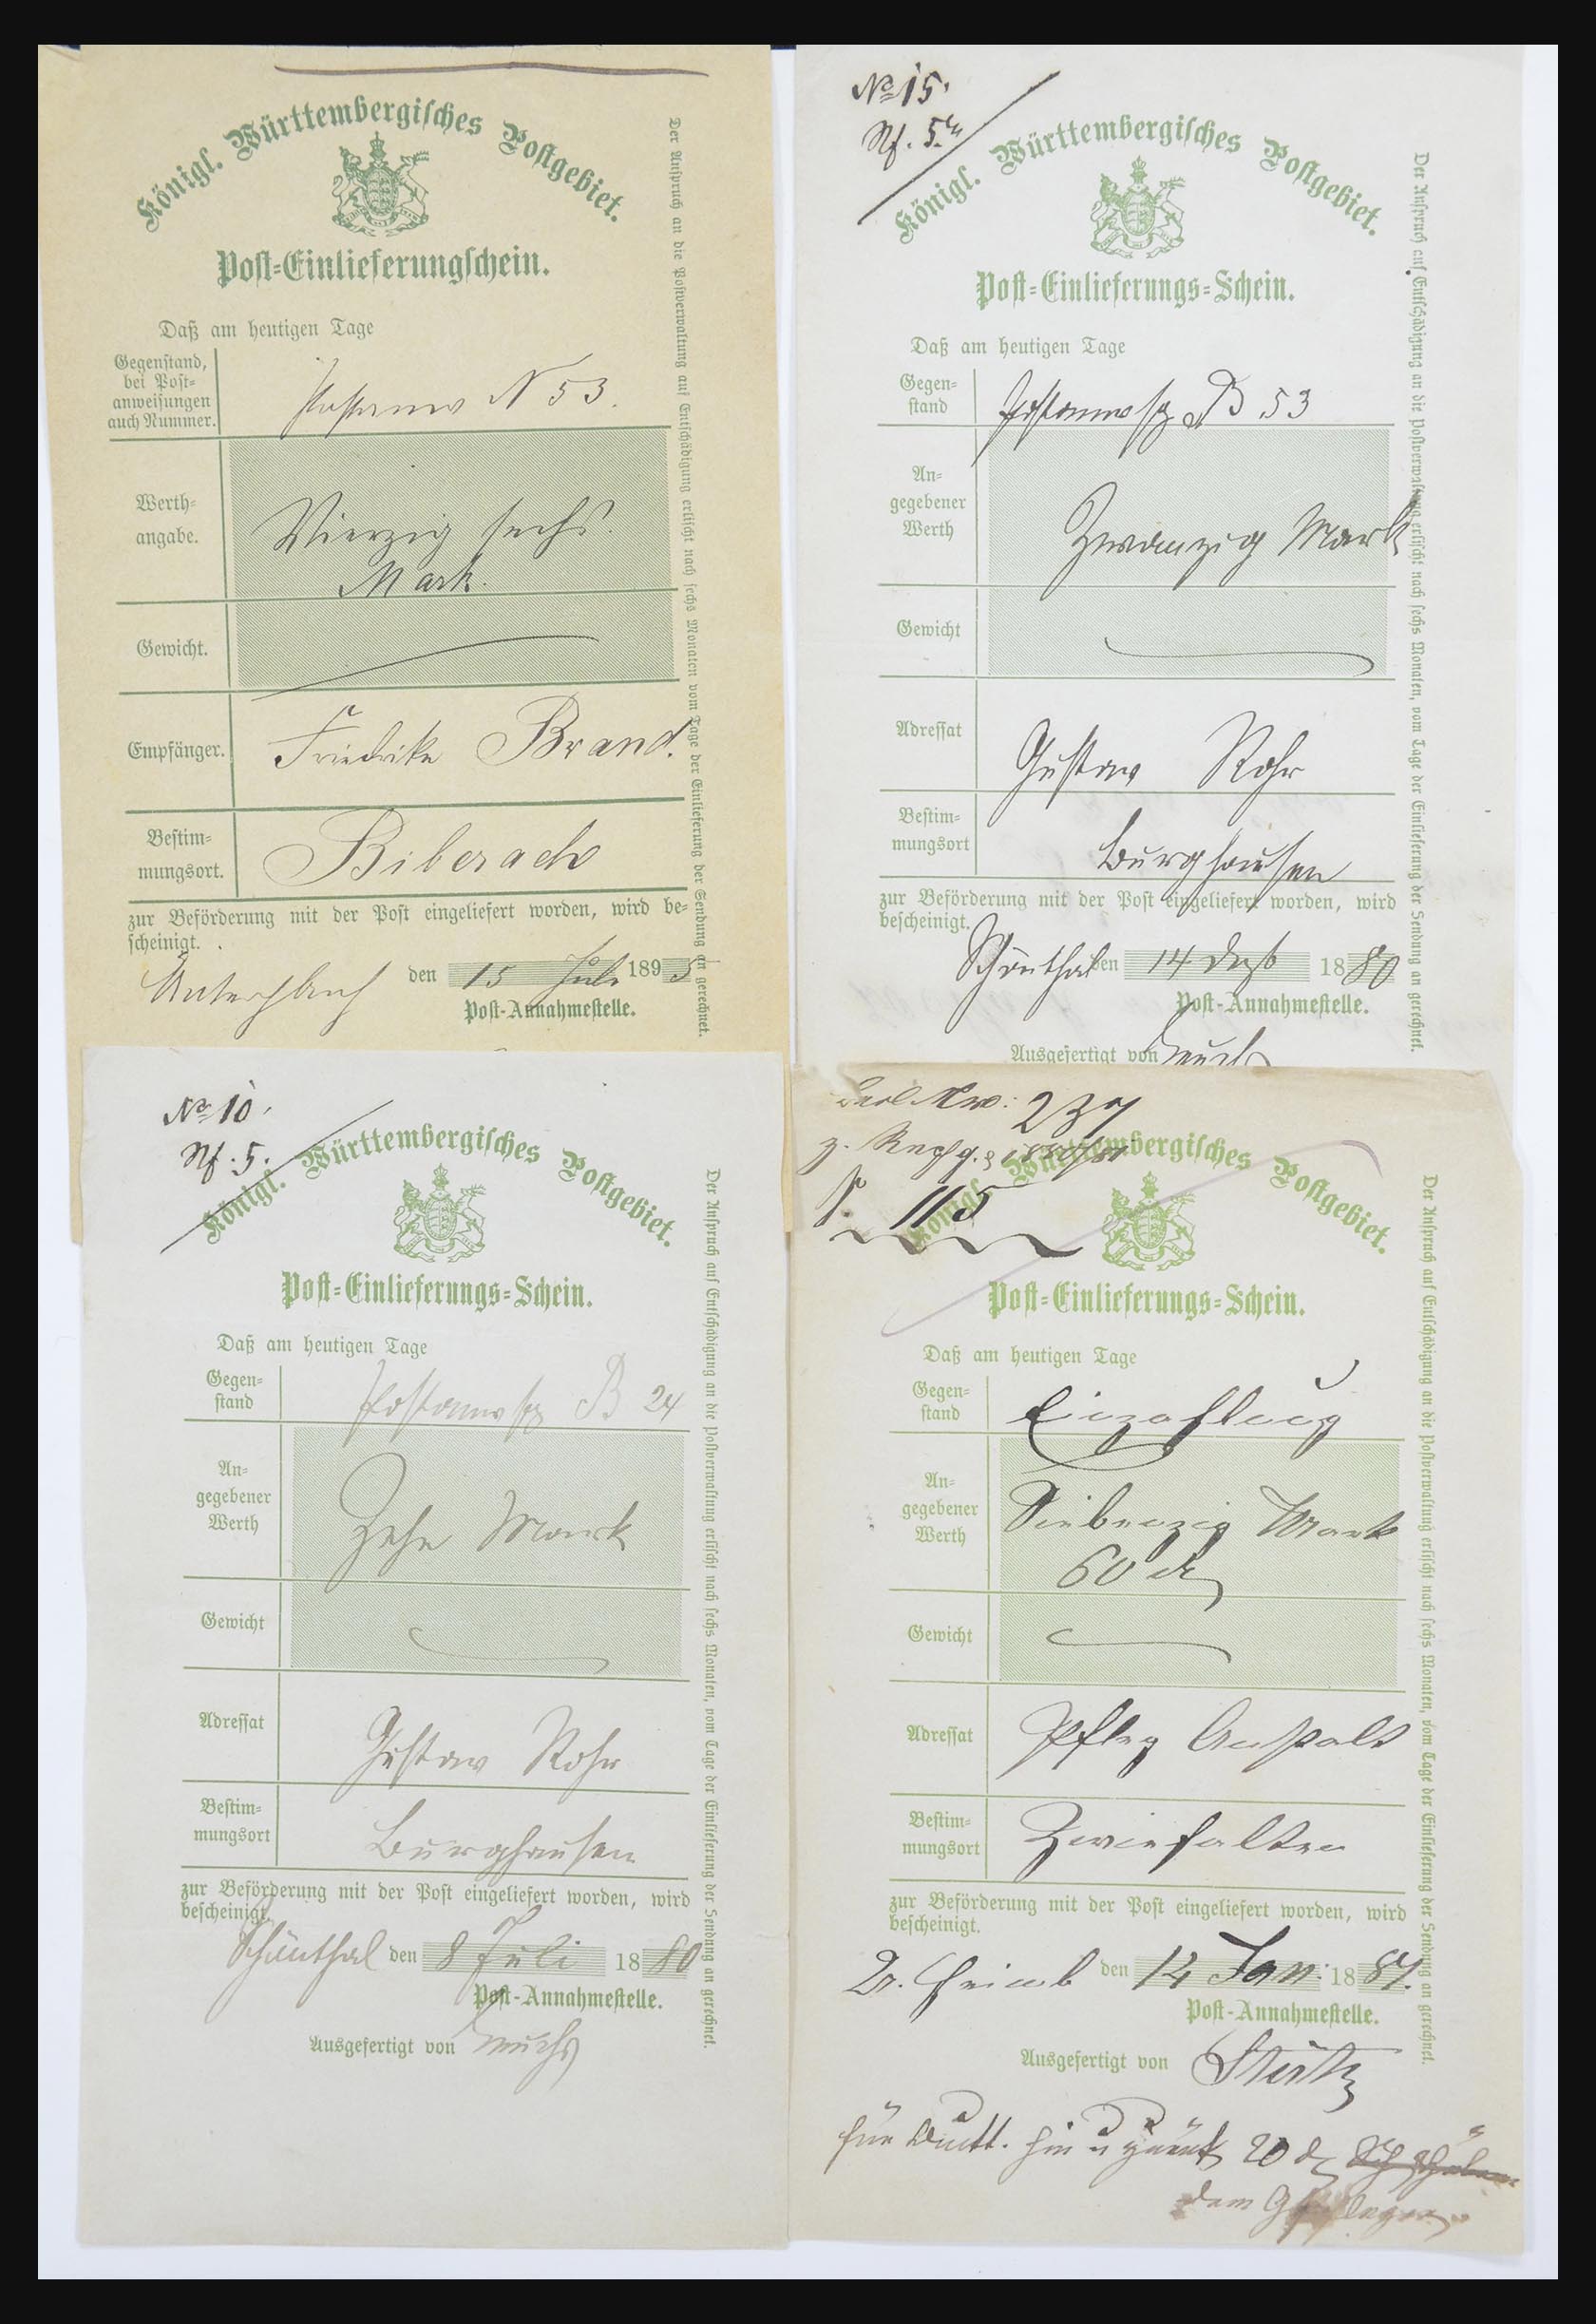 Königl. Württembergisches Postgebiet.
Post-Einlieferungschein.
Daß am heutigen Tage
Gegenstand,
bei Post-
anweisungen
auch Nummer.
N 53.
Werth-
angabe.
Vierzig sechs
Mark.
Gewicht.
Empfänger.
Friedrike Brand.
Bestim-
mungsort.
Biberach
zur Beförderung mit der Post eingeliefert worden, wird be-
scheinigt.
den 15 Juli 1895
Post-Annahmestelle.
Der Anspruch an die Postverwaltung auf Entschädigung erlischt nach sechs Monaten vom Tage der Einlieferung der Sendung an gerechnet.
No 15.
Königl. Württembergisches Postgebiet.
Post-Einlieferungs-Schein.
Daß am heutigen Tage
Gegen-
stand
Postanwsg B 53
An-
gegebener
Werth
Zwanzig Mark
Gewicht
Adressat
Gustav Rohr
Bestim-
mungsort
Burghausen
zur Beförderung mit der Post eingeliefert worden, wird
bescheinigt.
Schönthal den 14 Dezb 1880
Post-Annahmestelle.
Ausgefertigt von
Der Anspruch auf Entschädigung an die Postverwaltung erlischt nach sechs Monaten, vom Tage der Einlieferung der Sendung an gerechnet.
No 10.
Königl. Württembergisches Postgebiet.
Post-Einlieferungs-Schein.
Daß am heutigen Tage
Gegen-
stand
Postanwsg B 24
An-
gegebener
Werth
Zehn Mark
Gewicht
Adressat
Gustav Rohr
Bestim-
mungsort
Burghausen
zur Beförderung mit der Post eingeliefert worden, wird
bescheinigt.
Schönthal den 8 Juli 1880
Post-Annahmestelle.
Ausgefertigt von
Der Anspruch auf Entschädigung an die Postverwaltung erlischt nach sechs Monaten, vom Tage der Einlieferung der Sendung an gerechnet.
237
115
Königl. Württembergisches Postgebiet.
Post-Einlieferungs-Schein.
Daß am heutigen Tage
Gegen-
stand
Einzahlung
An-
gegebener
Werth
Siebenzig Mark
60 d
Gewicht
Adressat
Pfleg Anstalt
Bestim-
mungsort
Zwiefalten
zur Beförderung mit der Post eingeliefert worden, wird
bescheinigt.
den 12 Jan. 1881.
Post-Annahmestelle.
Ausgefertigt von
für hin u 20 d
dem
Der Anspruch auf Entschädigung an die Postverwaltung erlischt nach sechs Monaten, vom Tage der Einlieferung der Sendung an gerechnet.